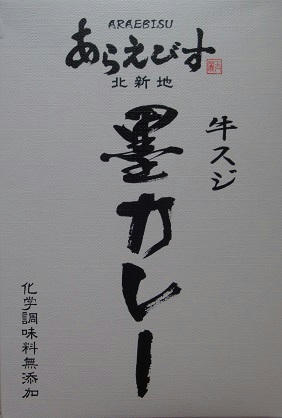 ARAEBISU
あらえびす
北新地
牛スジ
墨カレー
化学調味料無添加